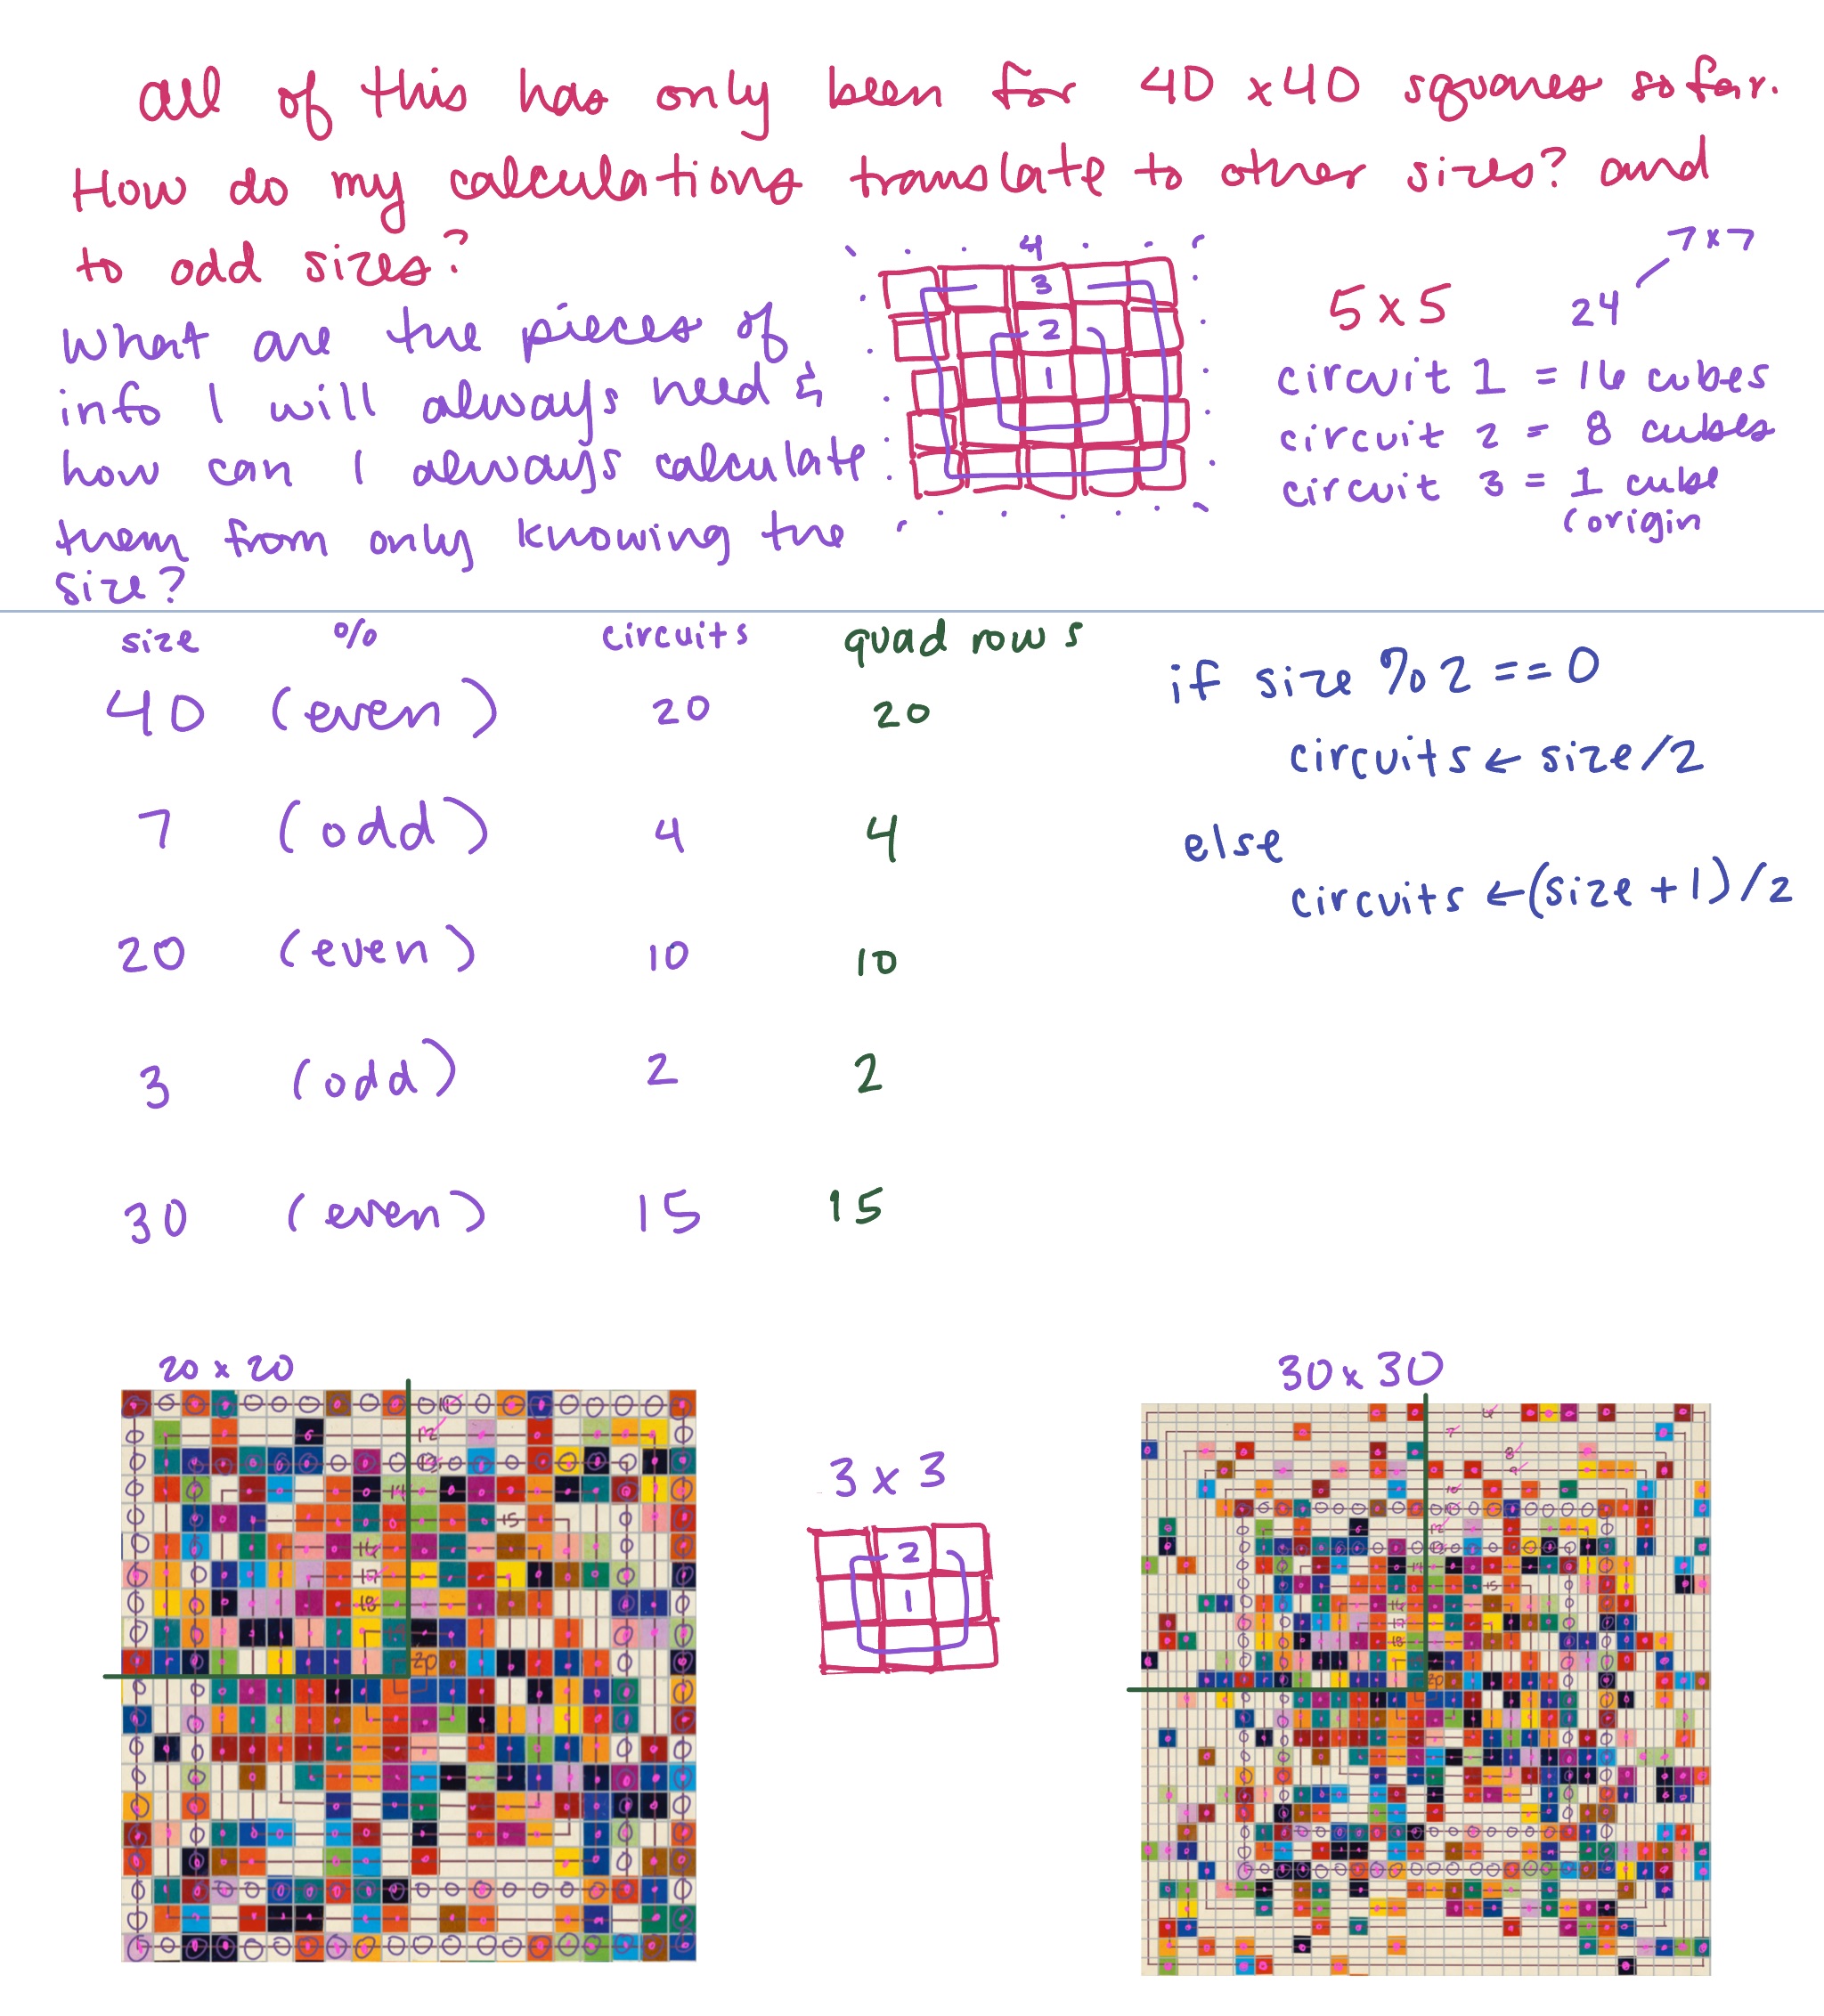 all of this has only been for 40 x 40 squares so far.
How do my calculations translate to other sizes? and
to odd sizes?
What are the pieces of
info I will always need &
how can I always calculate
them from only knowing the
size?
4
3
2
1
7x7
5 x 5 24
circuit 1 = 16 cubes
circuit 2 = 8 cubes
circuit 3 = 1 cube
(origin
size % circuits quad rows
40 (even) 20 20
7 (odd) 4 4
20 (even) 10 10
3 (odd) 2 2
30 (even) 15 15
if size % 2 == 0
circuits ← size/2
else
circuits ← (size + 1)/2
20 x 20
14
15
16
17
18
20
3 x 3
2
1
30 x 30
7
8
9
10
14
15
16
18
20